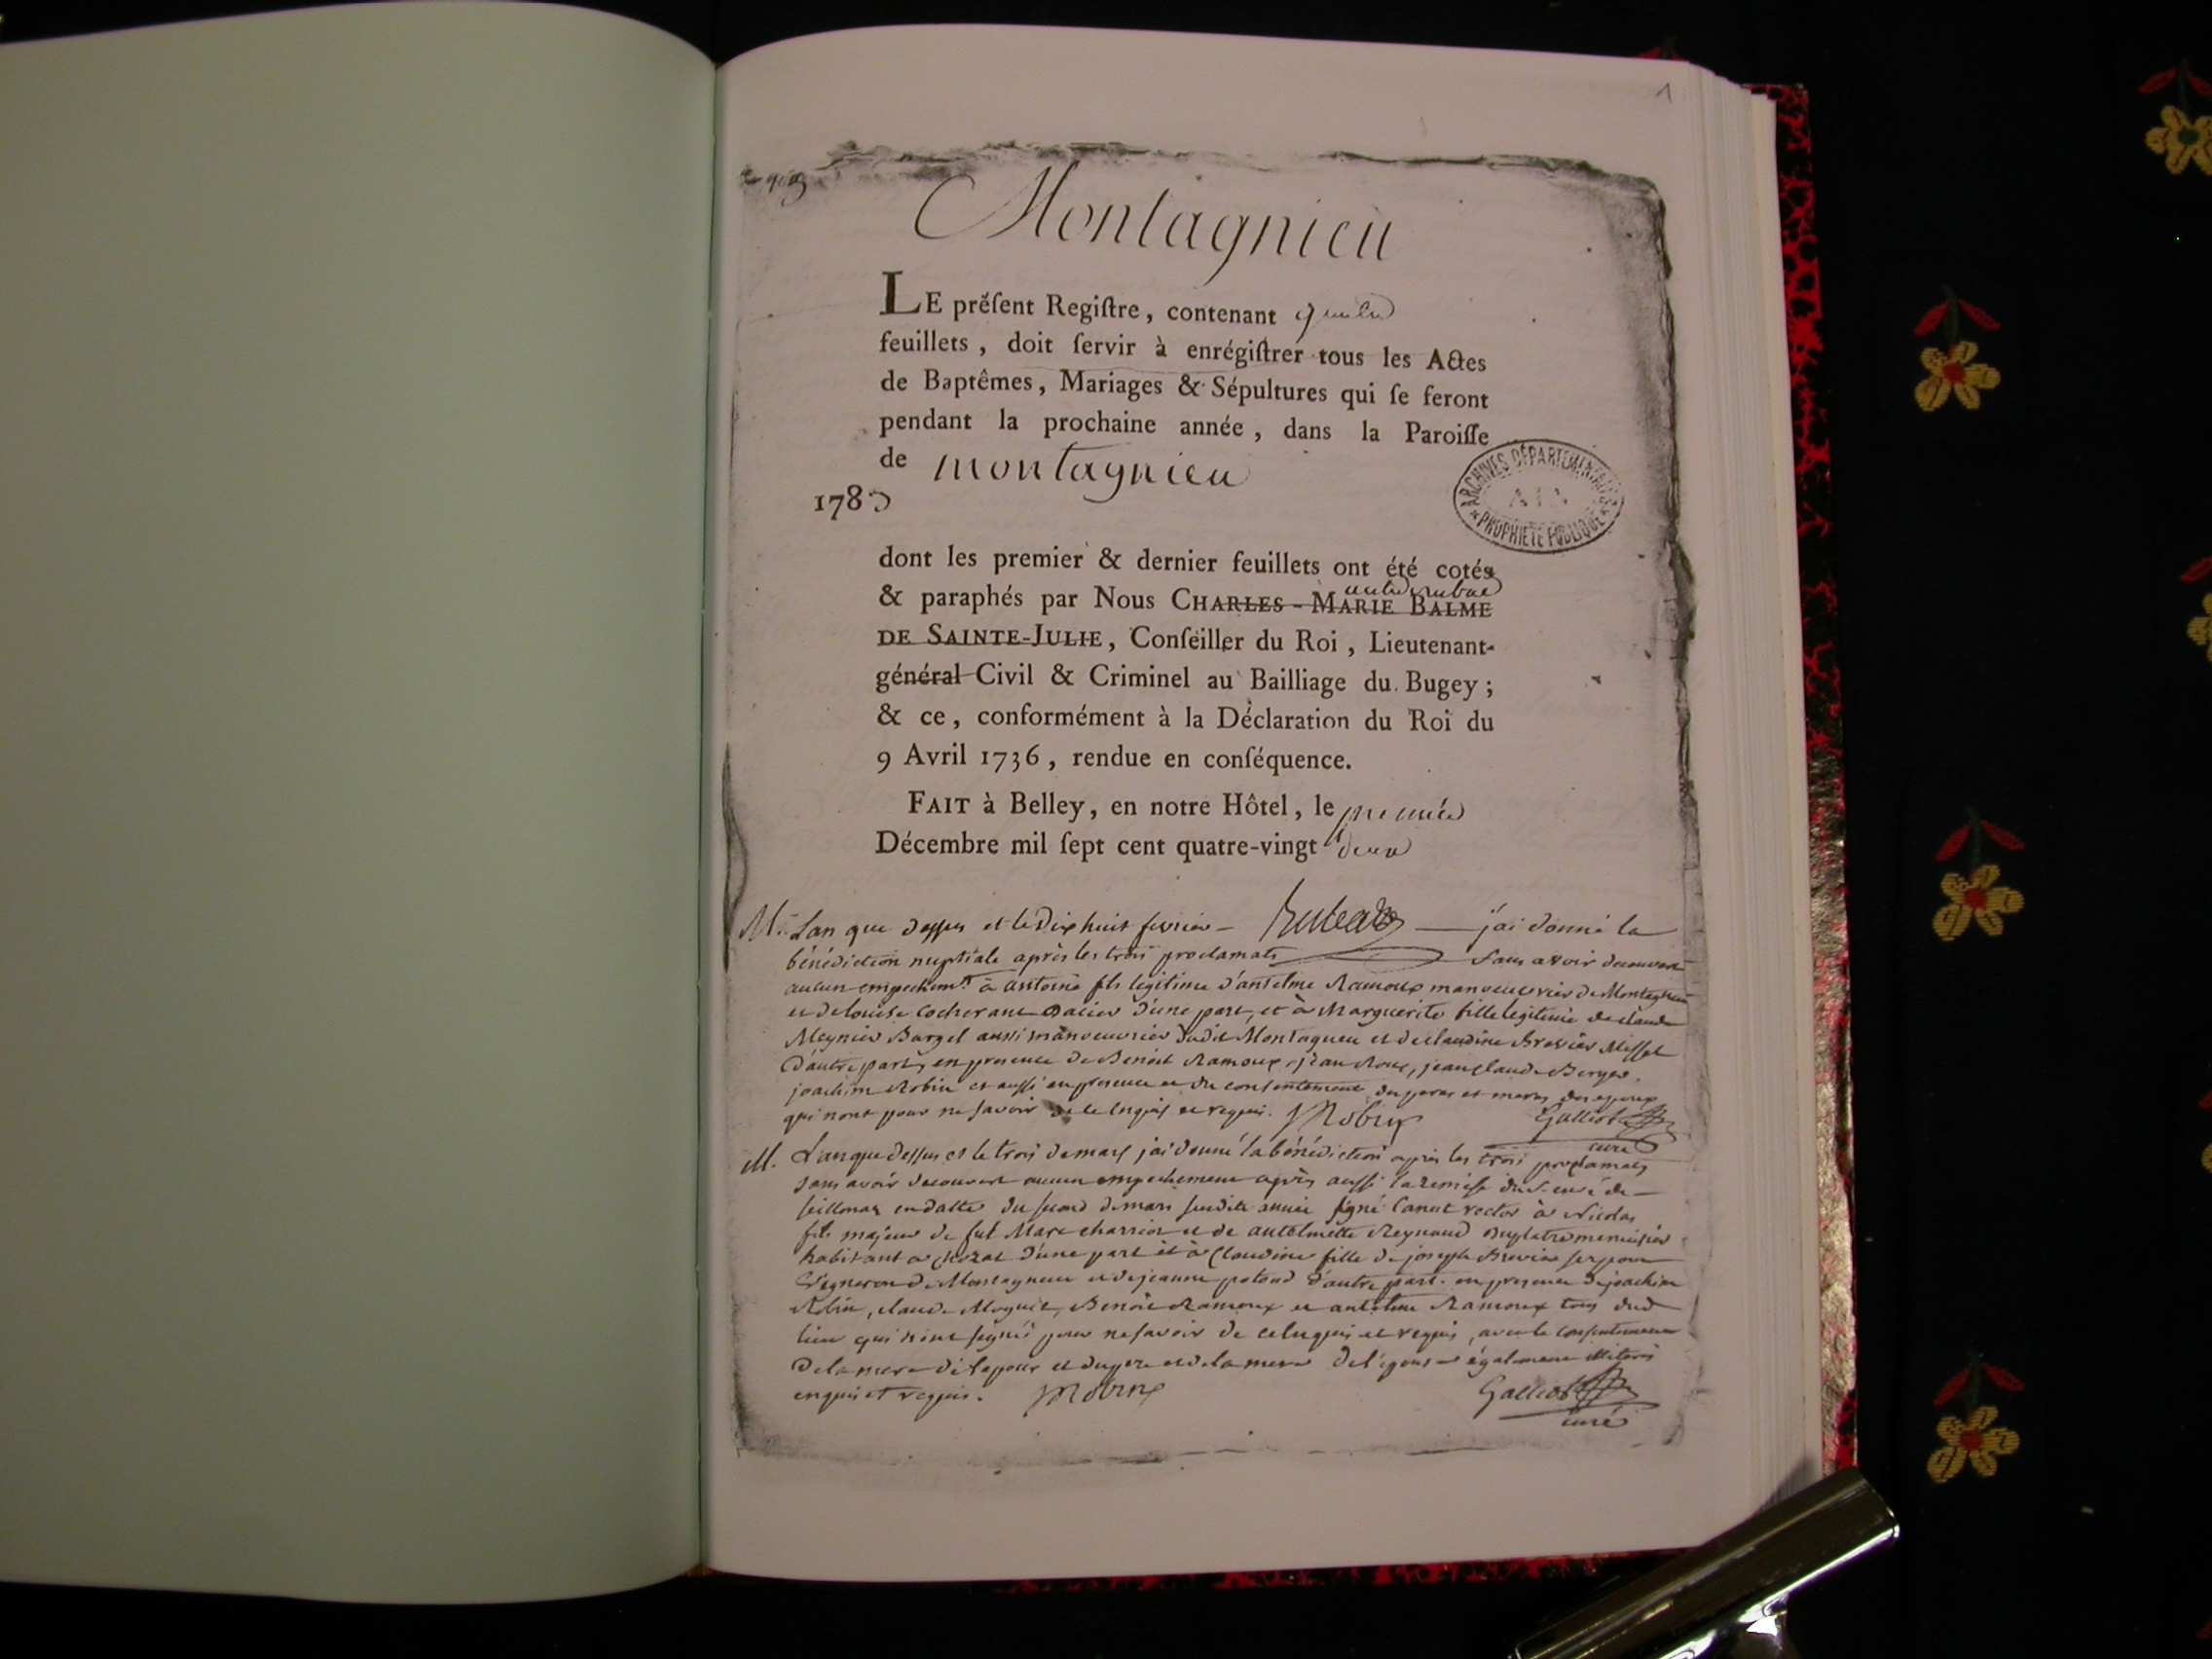 1
Montagnieu
LE préſent Regiſtre, contenant quatre
feuillets, doit ſervir à enrégiſtrer tous les Actes
de Baptêmes, Mariages & Sépultures qui ſe feront
pendant la prochaine année, dans la Paroiſſe
de montagnieu
1783
ARCHIVES DÉPARTEMENTALES
AIN
* PROPRIETE PUBLIQUE *
dont les premier & dernier feuillets ont été cotés
& paraphés par Nous CHARLES-MARIE BALME
DE SAINTE-JULIE, Conſeiller du Roi, Lieutenant-
général Civil & Criminel au Bailliage du Bugey;
& ce, conformément à la Déclaration du Roi du
9 Avril 1736, rendue en conſéquence.
FAIT à Belley, en notre Hôtel, le premier
Décembre mil ſept cent quatre-vingt deux
M. Lan que dessus et le Dix huit fevrier j'ai donné la
bénédiction nuptiale après les trois proclamats sans avoir decouvert
aucun empechemt. à antoine fils legitime d'antelme Ramoux manoeuvrier de Montagnieu
et de louise d'une part, et à Marguerite fille legitime de claude
Meynier aussi manoeuvrier dudit Montagneu et de claudine
D'autre part, en presence de Benoit Ramoux, jean Roux, jean claude Berger,
joachim Robin et aussi en presence et du consentement des peres et meres des epoux
qui n'ont pour ne savoir de ce enquis et requis. J Robin Galliot
curé
M. L'an que dessus et le trois de mars j'ai donné la bénédiction après les trois proclamats
sans avoir decouvert aucun empechement après aussi la remise du S. curé de
seillonas en datte du second de mars susdite année signé Canat rector à Nicolas
fils majeur de fut Marc charrion et de antelmette Reynaud menuisier
habitant a d'une part et à Claudine fille de joseph
Vigneron de Montagnieu et de jeanne d'autre part. en presence de joachim
Robin, claude, Benoit Ramoux et antelme Ramoux tous dud
lieu qui n'ont signé pour ne savoir de ce enquis et requis, avec le consentement
De la mere de l'epoux et du pere et de la mere de l'epouse également illiteris
enquis et requis. J Robin Galliot
curé